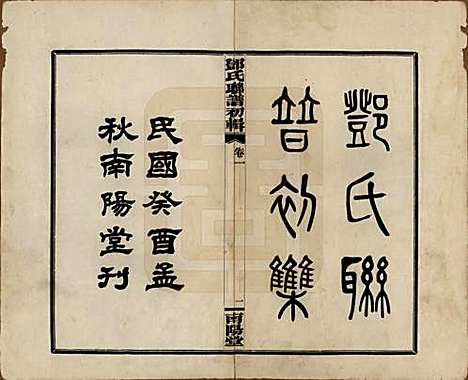 鄧氏聯
譜初集
鄧氏聯譜初輯
卷一
一
南陽堂
民國癸酉孟
秋南陽堂刊